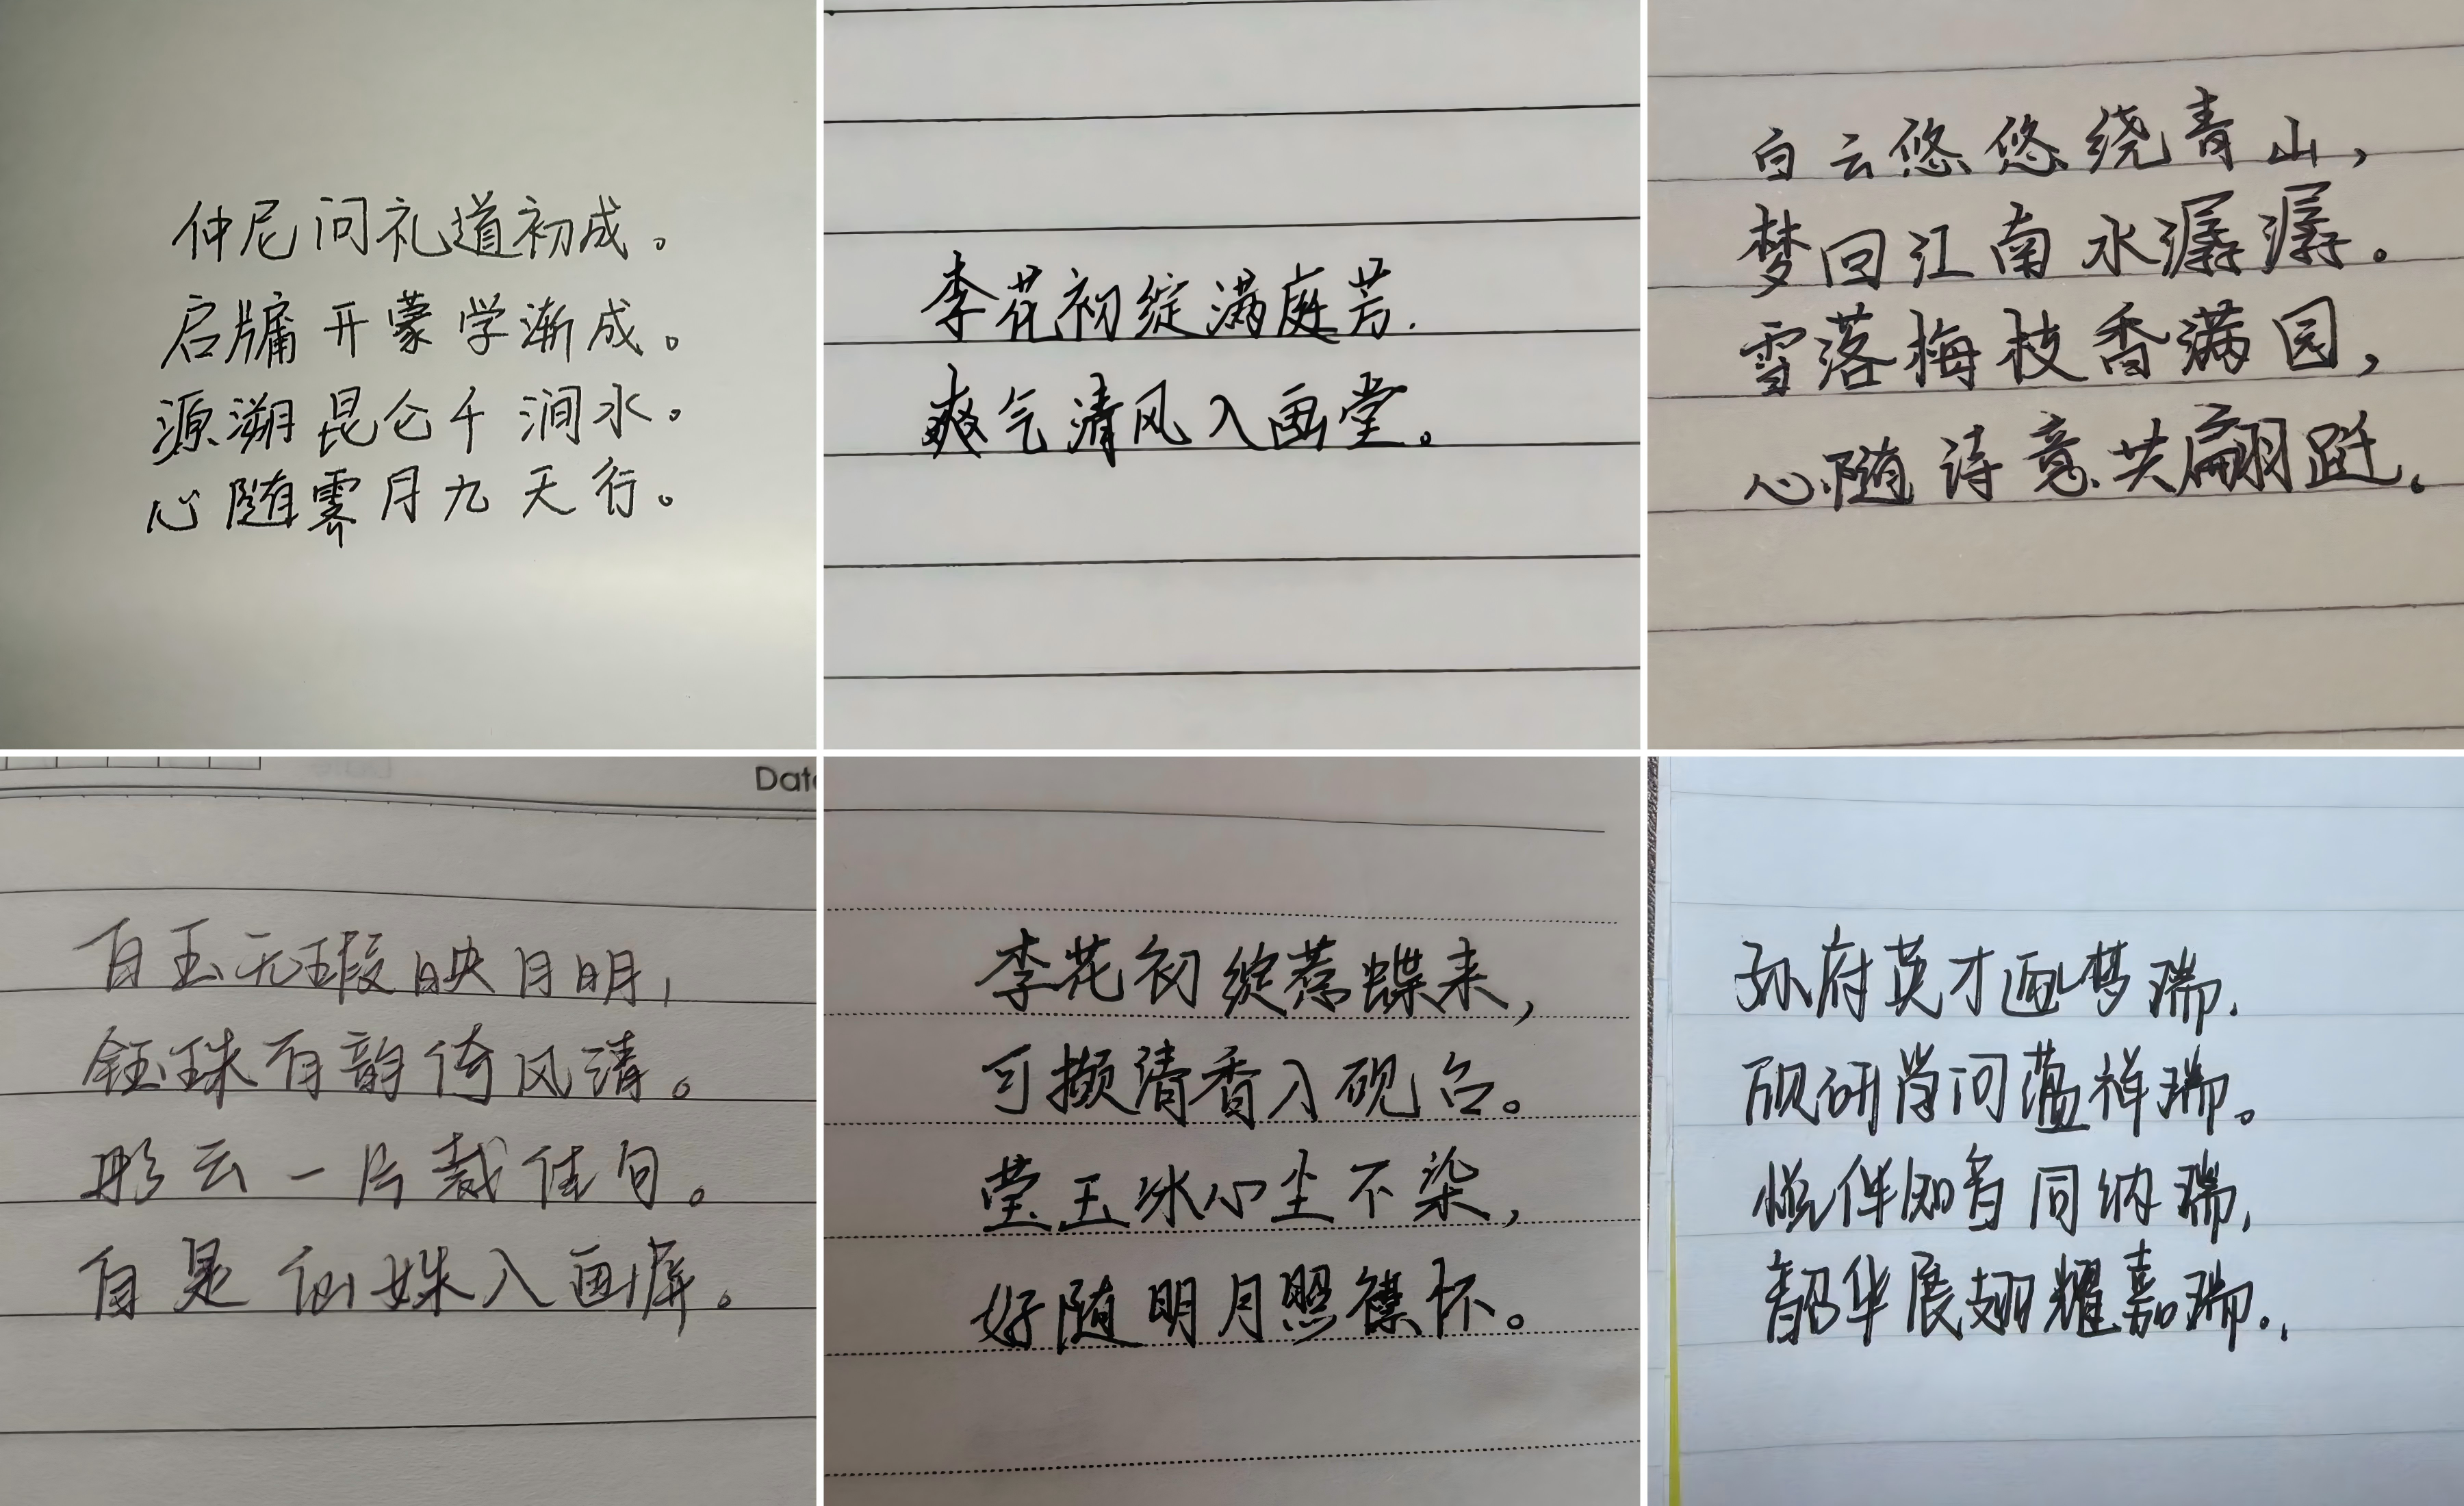 仲尼问礼道初成。
启牖开蒙学渐成。
源溯昆仑千涧水。
心随霁月九天行。
李花初绽满庭芳.
爽气清风入画堂。
白云悠悠绕青山，
梦回江南水潺潺。
雪落梅枝香满园，
心随诗意共翩跹。
Dat
白玉无瑕映月明，
钰珠有韵倚风清。
彤云一片裁佳句。
自是仙姝入画屏。
李花初绽惹蝶来，
可撷清香入砚台。
莹玉冰心尘不染，
好随明月照襟怀。
孙府英才梦瑞.
砚研问蕴祥瑞。
悦伴知音同纳瑞,
韶华展翅耀嘉瑞.